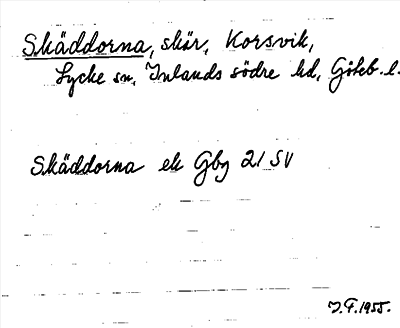 Skäddorna, skär, Korsvik,
Lycke sn, Inlands södre hd, Göteb. l.
Skäddorna ek Gbg 21 SV
J. F. 1955.